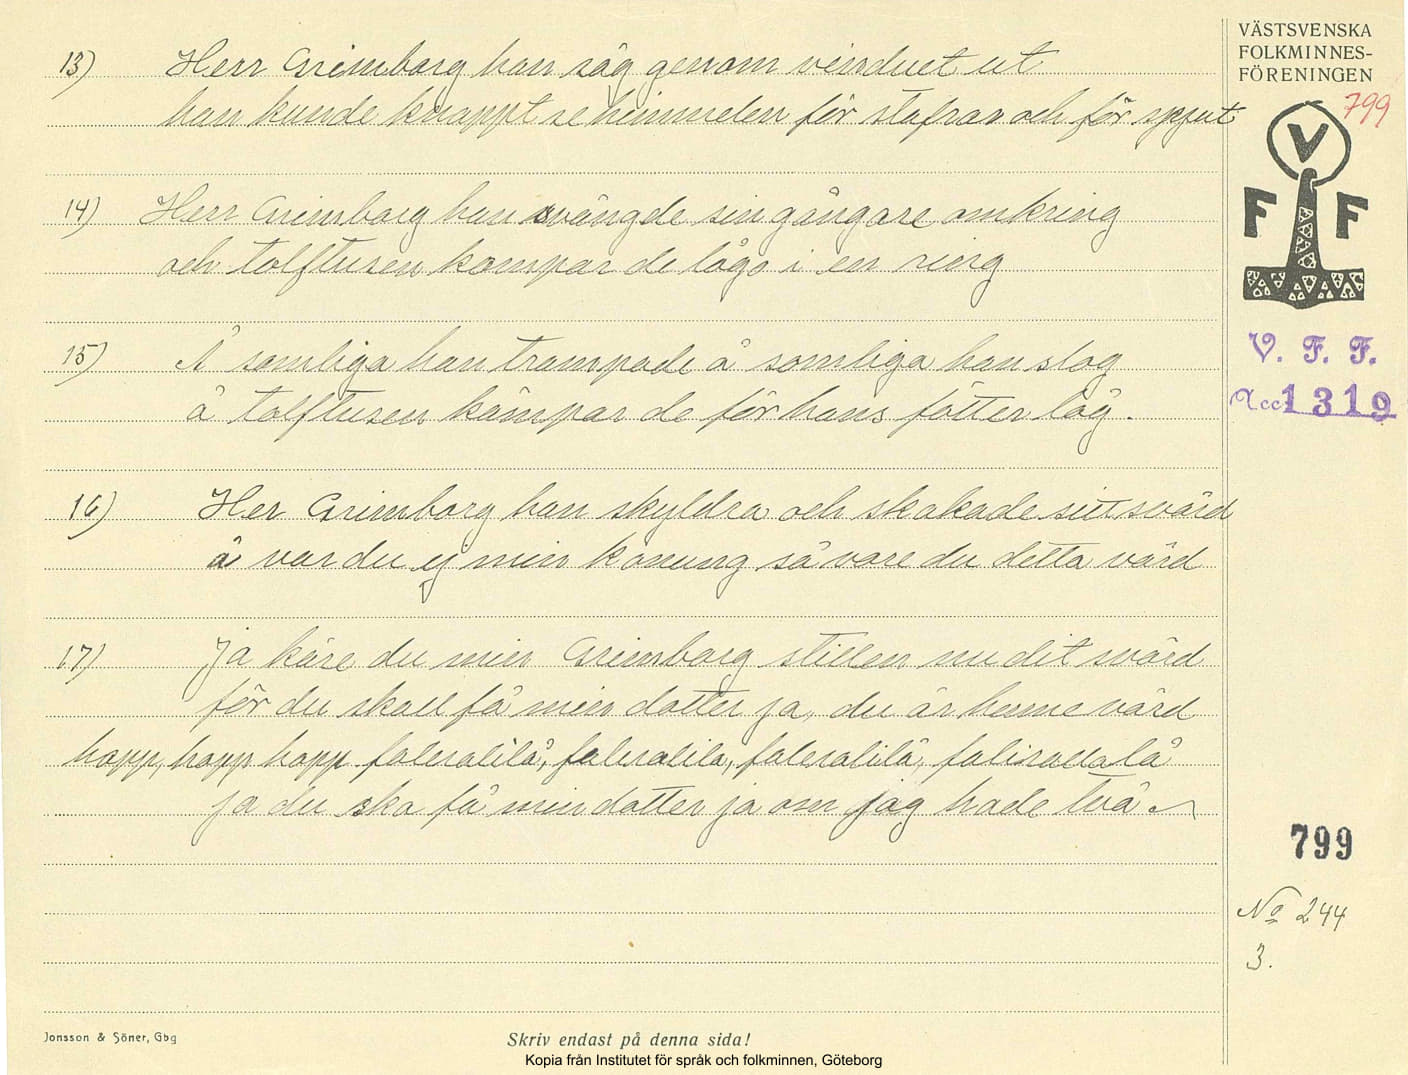 13) Herr Grimborg han såg genom vinduet ut
han kunde knappt se himmelen för stafrar och för spjut
14) Herr Grimborg han svängde sin gångare omkring
och tolftusen kämpar de lågo i en ring
15) Å somliga han trampade å somliga han slog
å tolftusen kämpar de för hans fötter låg.
16) Her Grimborg han skyldra och skakade sitt svärd
å var du ej min konung så vore du detta värd
17) Ja käre du min Grimborg stillen nu dit svärd
för du skall få min dotter ja, du är henne värd
hopp, hopp hopp faleralilå, faleralila, faleralilå, faliralla lå
ja du ska få min dotter ja om jag hade två
VÄSTSVENSKA
FOLKMINNES-
FÖRENINGEN
799
V
F F
V. F. F.
Acc 1319
799
No 244
3.
Jonsson & Söner, Gbg
Skriv endast på denna sida!
Kopia från Institutet för språk och folkminnen, Göteborg